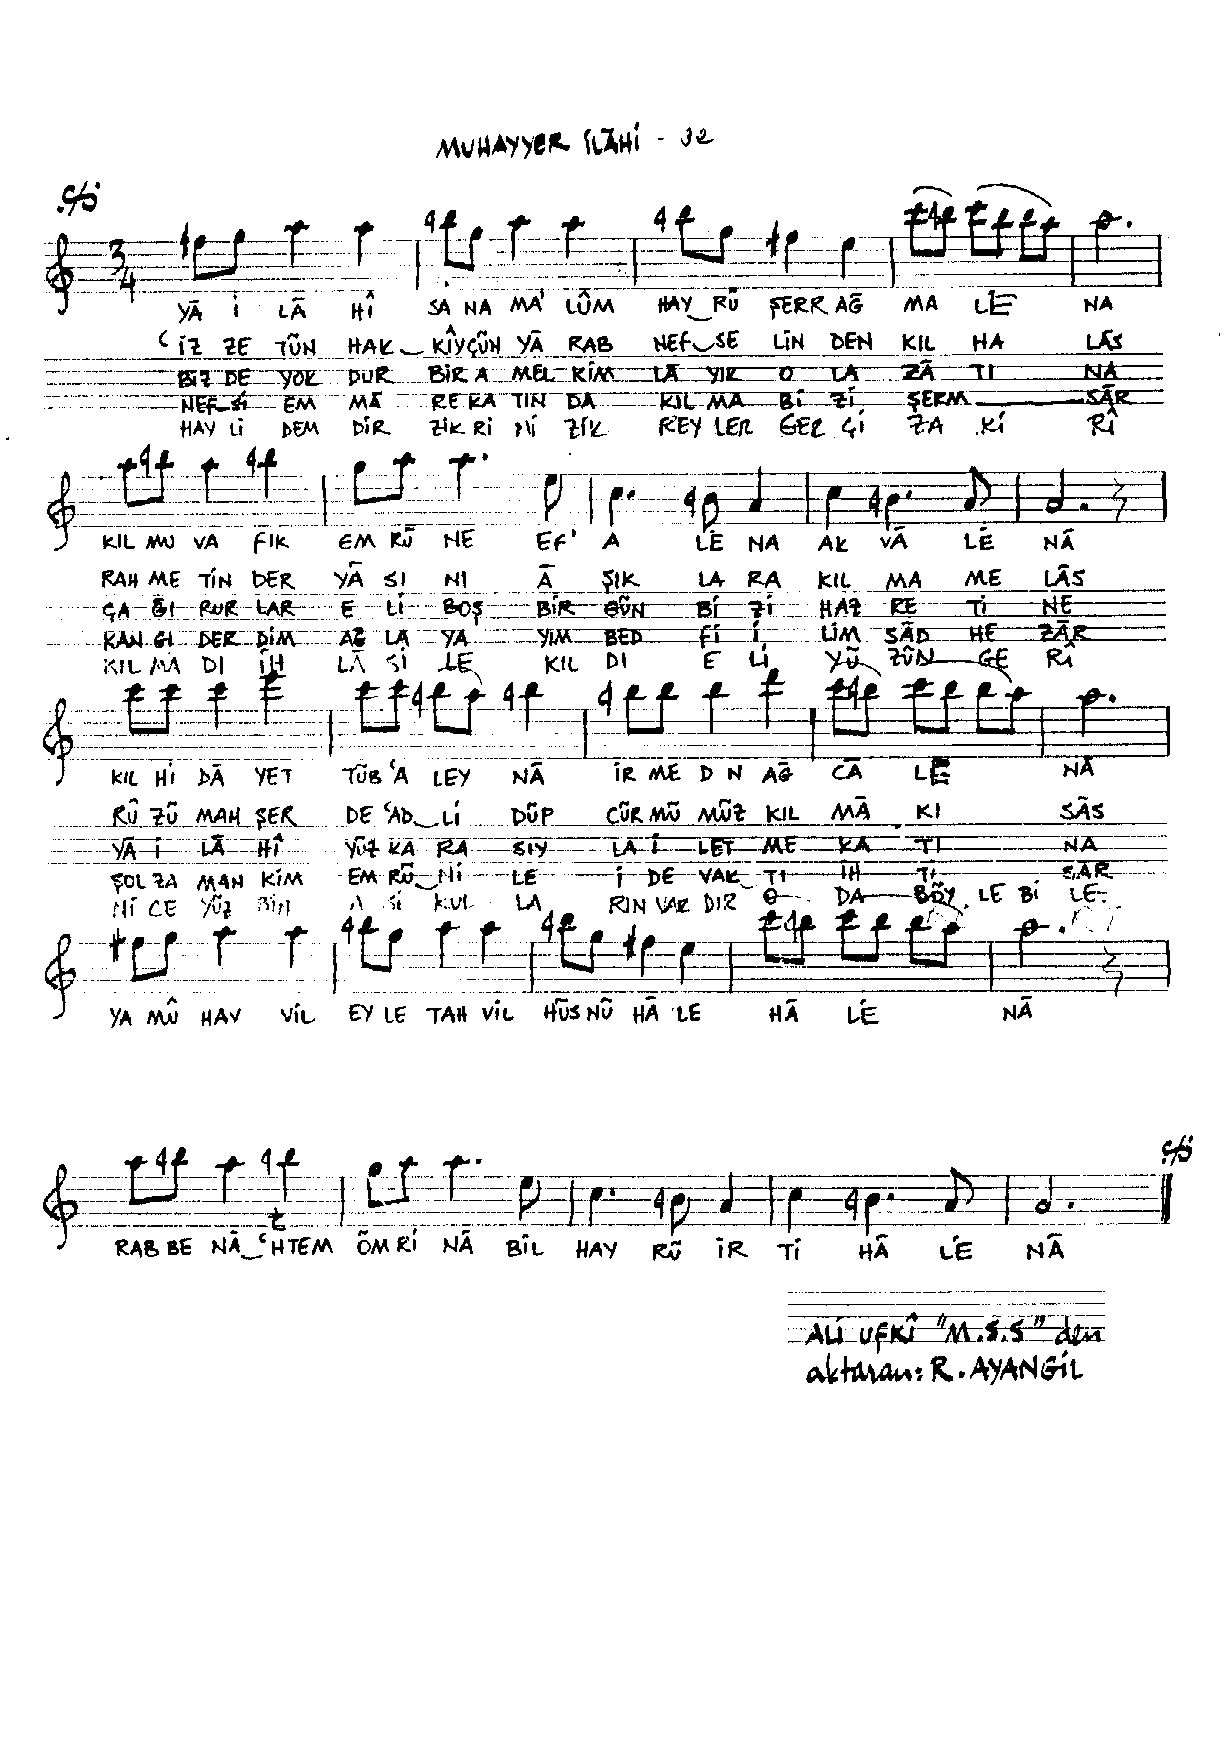 MUHAYYER İLÂHİ - 32
3/4
YĀ İ LĀ HÎ SA NA MA' LÛM HAY RŪ ŞERR AĞ MA LE NA
İZ ZE TÜN HAK KÎYÇÜN YĀ RAB NEF SE LİN DEN KIL HA LĀS
BİZ DE YOK DUR BİR A MEL KİM LĀ YIK O LA ZĀ TI NA
NEF Sİ EM MĀ RE KA TIN DA KIL MA Bİ Zİ ŞERM SĀR
HAY Lİ DEM DİR ZİK Rİ Nİ ZİK REY LER GER Çİ ZA KÎ RÎ
KIL MU VA FIK EM RŪ NE EF' A LE NA AK VĀ LE NĀ
RAH ME TİN DER YĀ SI NI Ā ŞIK LA RA KIL MA ME LĀS
ÇA ĞI RUR LAR E Lİ BOŞ BİR GÜN Bİ Zİ HAZ RE Tİ NE
KAN Gİ DER DİM AĞ LA YA YIM BED Fİ İ LİM SĀD HE ZĀR
KIL MA DI İH LĀ SI LE KIL DI E Lİ YÜ ZÜN GE RÎ
KIL Hİ DĀ YET TÜB 'A LEY NĀ İR ME D N AĞ CĀ LE NĀ
RÛ ZÜ MAH ŞER DE 'AD Lİ DÜP CÜR MÜ MÜZ KIL MĀ KI SĀS
YĀ İ LĀ HÎ YÜZ KA RA SIY LA İ LET ME KA TI NA
ŞOL ZA MAN KİM EM RÜ Nİ LE İ DE VAK TI İH Tİ SAR
Nİ CE YÜZ BİN A Sİ KUL LA RIN VAR DIR O DA BÖY LE Bİ LE
YA MÛ HAV VİL EY LE TAH VİL HÜS NÜ HĀ LE HĀ LE NĀ
RAB BE NĀ 'HTEM ÖM Rİ NĀ BİL HAY RÜ İR Tİ HĀ LE NĀ
ALİ UFKÎ "M.S.S" den
aktaran: R. AYANGİL